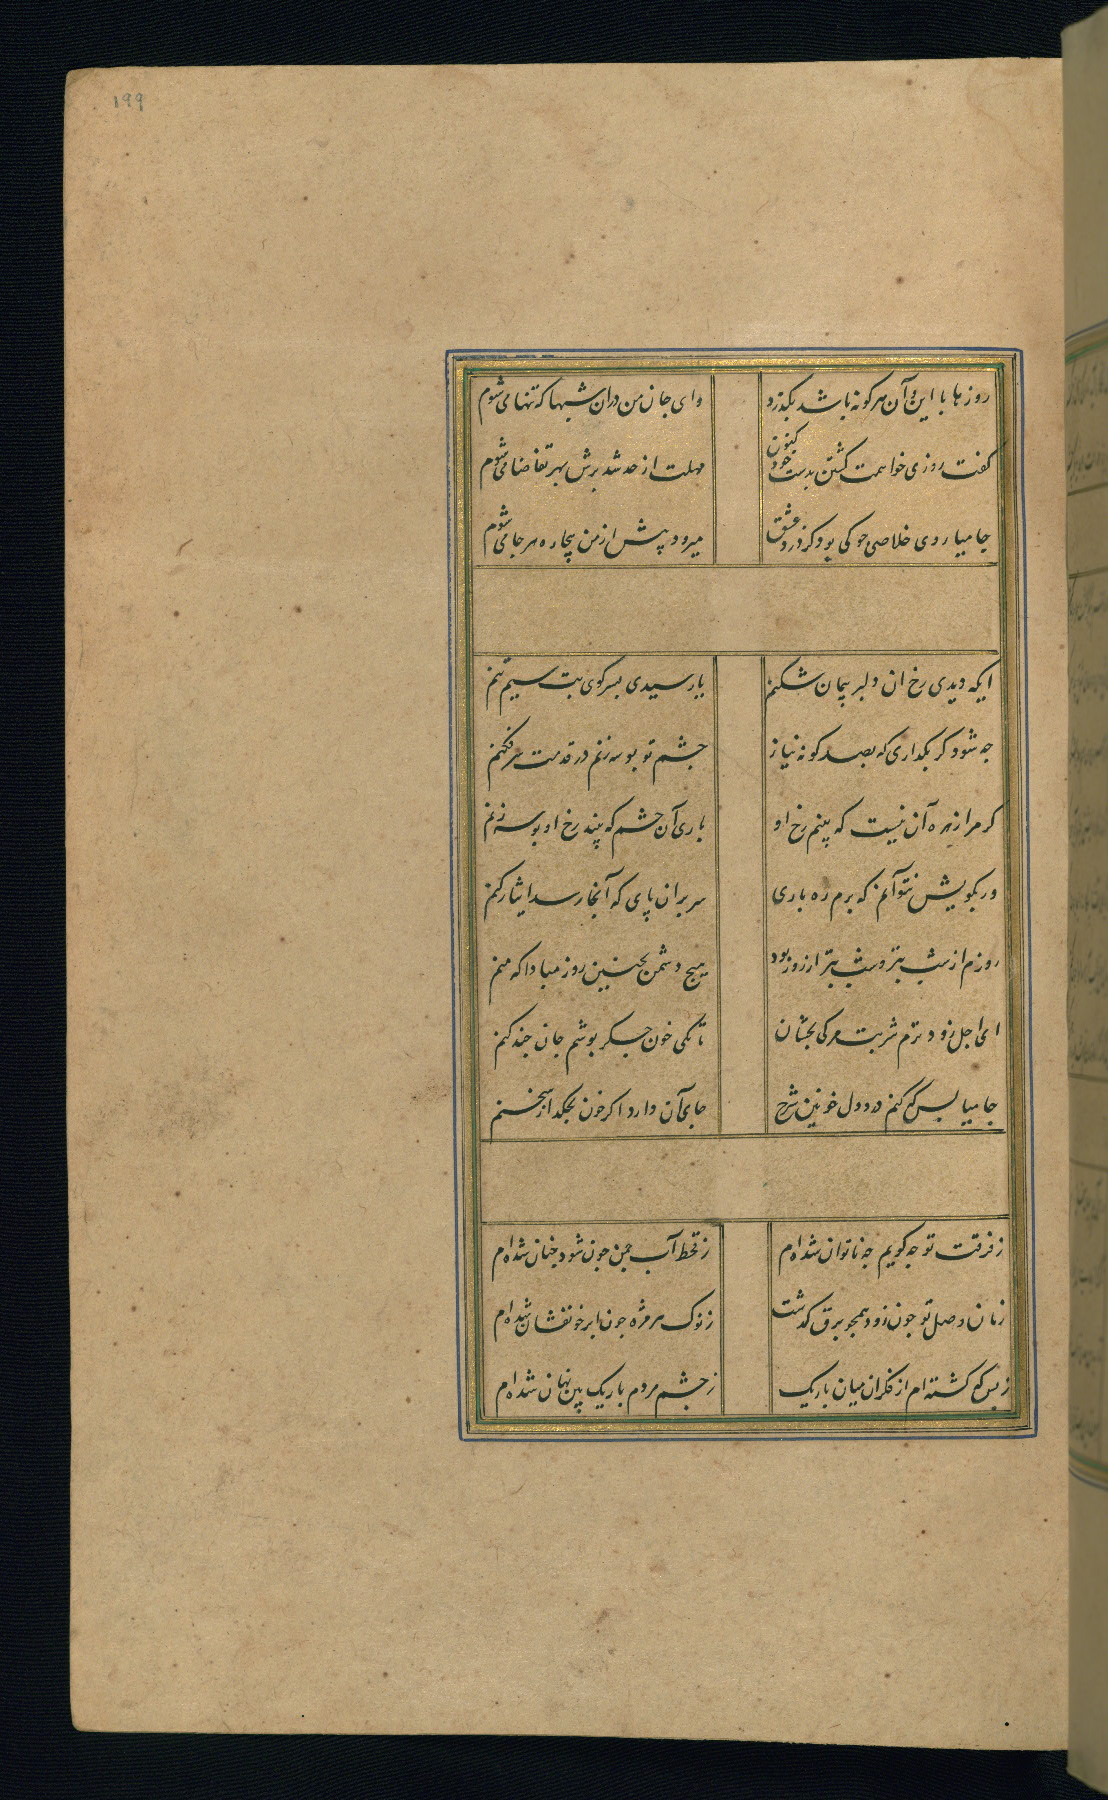 ۱۹۹
روزها با این و آن هر گونه باشد بگذرد وای جان من دران شبها که تنها می شوم
گفت روزی خواهمت کشتن بدست خود کنون مهلت از حد شد برش بهر تقاضا می شوم
جامیا روی خلاصی جو کی بود کز درد عشق میرود پیش از من بیچاره هر جا می شوم
ایکه دیدی رخ ان دلبر پیمان شکنم یا رسیدی بسر کوی بت سیم تنم
چه شود کر بکداری که بصد کونه نیاز چشم تو بوسه زنم در قدمت سر فکنم
کر مرا زهره آن نیست که بینم رخ او باری آن چشم که بیند رخ او بوسه زنم
ور بکویش نتوانم که برم ره باری سر بران پای که آنجا رسد ایثار کنم
روزم از شب بتر و شب بتر از روز بود هیچ دشمن بچنین روز مبادا که منم
ای اجل زود ترم شربت مرکی بچشان تا بکی خون جکر نوشم و جان چند کنم
جامیا بس که کنم درد دل خونین شرح جای آن دارد اکر خون بچکد از سخنم
ز فرقت تو چه کویم چه ناتوان شده ام ز قحط آب چمن چون شود چنان شده ام
زمان وصل تو چون زود همچو برق کذشت ز نوک هر مژه چون ابر خونفشان شده ام
ز بس که کشته ام از فکر ان میان باریک ز چشم مردم باریک بین نهان شده ام